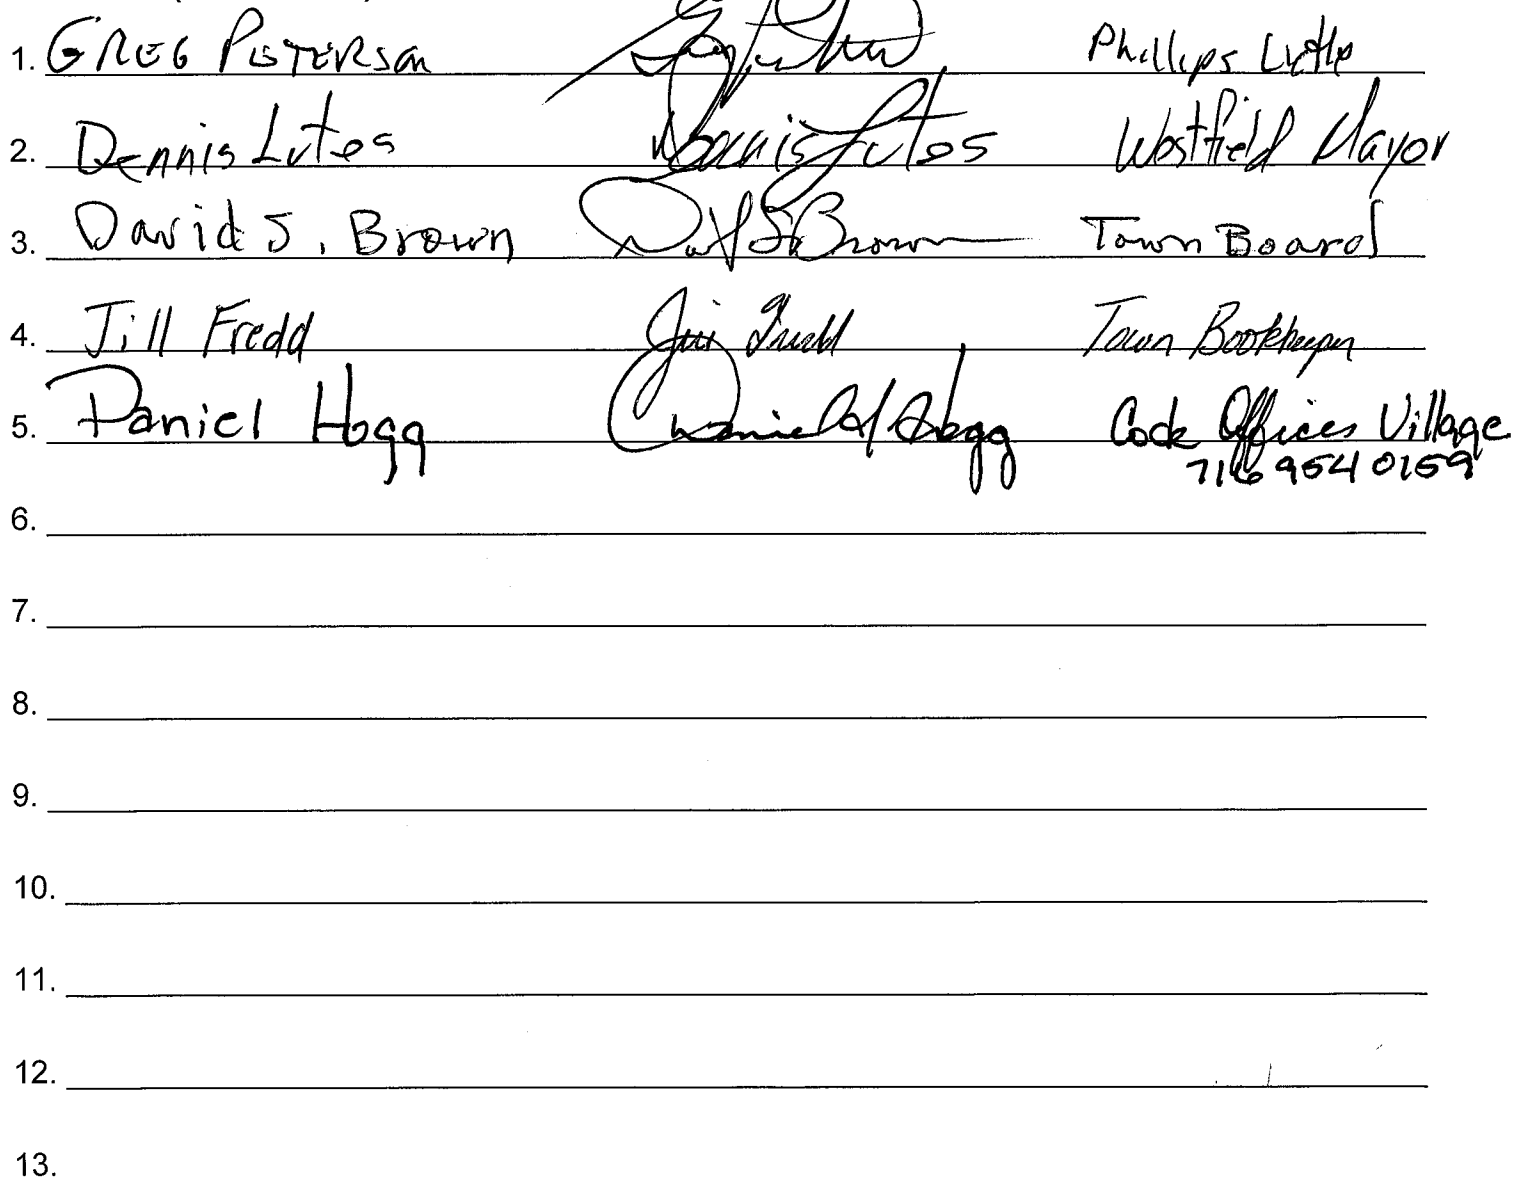 1. GREG PETERSON Phillips Lytle
2. Dennis Lutes Dennis Lutes Westfield Mayor
3. David S. Brown David S. Brown Town Board
4. Jill Fredd Jill Fredd Town Bookkeeper
5. Daniel Hogg Daniel Hogg Code Officer Village
716 954 0159
6.
7.
8.
9.
10.
11.
12.
13.